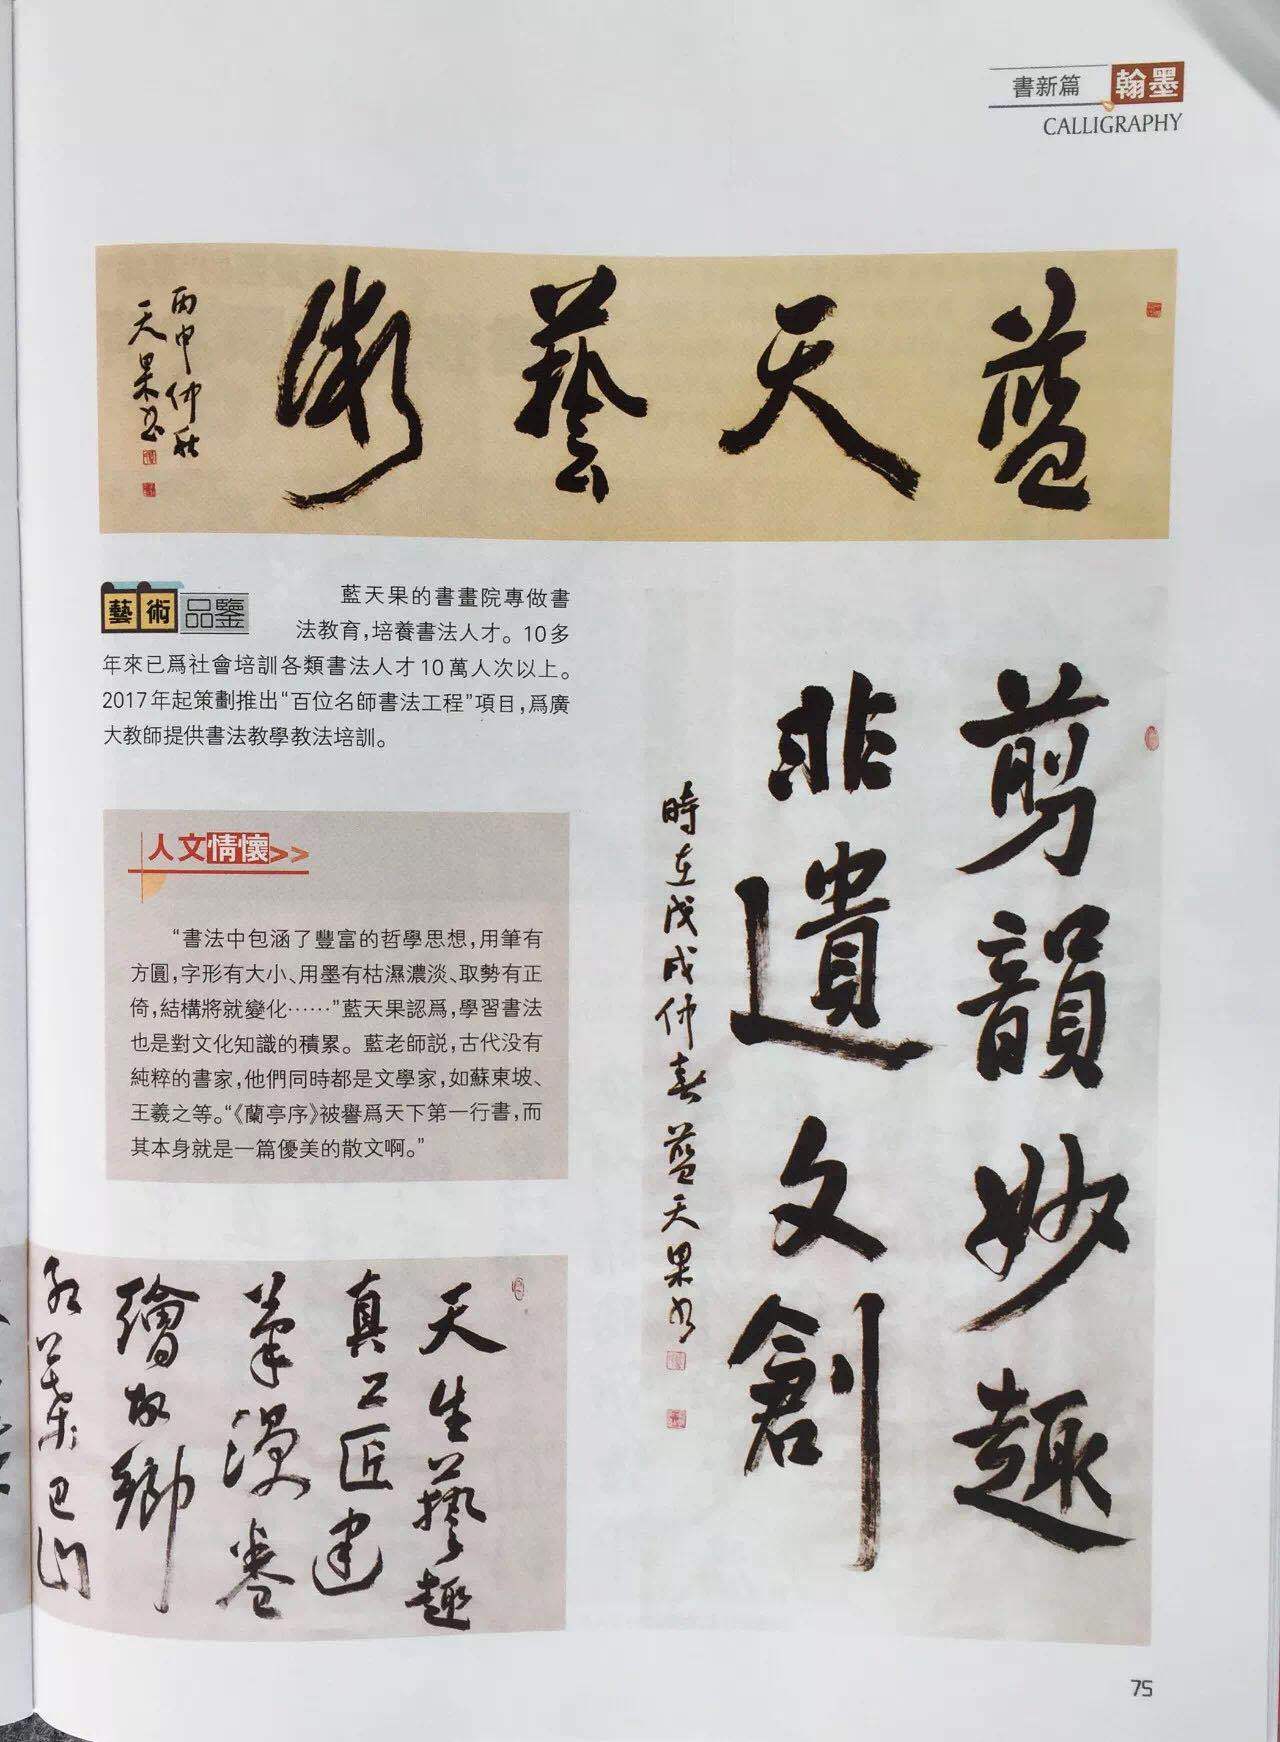 書新篇 翰墨
CALLIGRAPHY
藍天藝術
丙申仲秋
天果書
藝術品鑒
藍天果的書畫院專做書
法教育，培養書法人才。10多
年來已爲社會培訓各類書法人才10萬人次以上。
2017年起策劃推出“百位名師書法工程”項目，爲廣
大教師提供書法教學教法培訓。
人文情懷>>
“書法中包涵了豐富的哲學思想，用筆有
方圓，字形有大小、用墨有枯濕濃淡、取勢有正
倚，結構將就變化……”藍天果認爲，學習書法
也是對文化知識的積累。藍老師説，古代没有
純粹的書家，他們同時都是文學家，如蘇東坡、
王羲之等。“《蘭亭序》被譽爲天下第一行書，而
其本身就是一篇優美的散文啊。”
剪韻妙趣
非遺文創
時在戊戌仲春藍天果書
天生藝趣
真工匠建
筆漫卷
繪故鄉
葉巴山
75